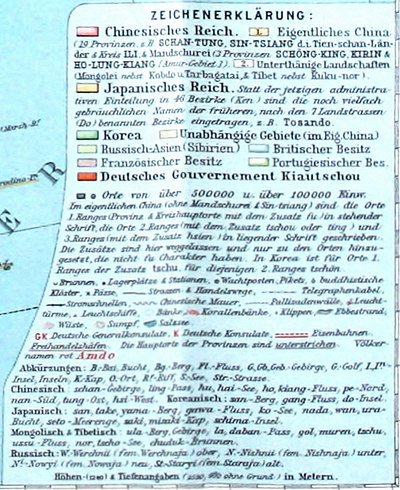 ZEICHENERKLÄRUNG:
Chinesisches Reich. 1. Eigentliches China
(19 Provinzen, z.B. SCHAN-TUNG, SIN-TSIANG d.i. Tien-schan-Län-
der & Kreis ILI & Mandschurei (3 Provinzen SCHÖNG-KING, KIRIN &
HO-LUNG-KIANG (Amur-Gebiet). 2. Unterthänige Landschaften
(Mongolei nebst Kobdo u. Tarbagatai, & Tibet nebst Kuku-nor).
Japanisches Reich. Statt der jetzigen administra-
tiven Einteilung in 46 Bezirke (Ken) sind die noch vielfach
gebräuchlichen Namen der früheren, nach den 7 Landstrassen
(Do) benannten Bezirke eingetragen, z.B. Tosando.
Korea Unabhängige Gebiete (im Eig. China)
Russisch-Asien (Sibirien) Britischer Besitz
Französischer Besitz Portugiesischer Bes.
Deutsches Gouvernement Kiautschou
Orte von über 500000 u. über 100000 Einw.
Im eigentlichen China (ohne Mandschurei & Sin-tsiang) sind die Orte
1. Ranges (Provinz & Kreishauptorte mit dem Zusatz fu) in stehender
Schrift, die Orte 2. Ranges (mit dem Zusatz tschou oder ting) und
3. Ranges (mit dem Zusatz hsien) in liegender Schrift geschrieben.
Die Zusätze sind hier weggelassen und nur zu den Orten hinzu-
gesetzt, die nicht fu Charakter haben. In Korea ist für Orte 1.
Ranges der Zusatz tschu, für diejenigen 2. Ranges tschön
Brunnen, Lagerplätze & Stationen, Wachtposten, Pikets, buddhistische
Klöster, Pässe, Strassen & Handelswege, Telegraphenkabel,
Stromschnellen, Chinesische Mauer, Pallisadenwälle, Leucht-
türme, Leuchtschiffe, Bänke, Korallenbänke, Klippen, Ebbestrand,
Wüste, Sumpf, Salzste.
GK Deutsche Generalkonsulate, K Deutsche Konsulate. Eisenbahnen.
Freihandelshäfen. Die Hauptorte der Provinzen sind unterstrichen. Völker-
namen rot Amdo
Abkürzungen: B-Bai, Bucht, Bg-Berg, Fl-Fluss, G, Gb, Geb-Gebirge, G-Golf, I, In-
Insel, Inseln, K-Kap, O. Ort, R-Riff, S-See, Str-Strasse.
Chinesisch: schan-Gebirge, ling-Pass, hu, hai-See, ho, kiang-Fluss, pe-Nord,
nan-Süd, tung-Ost, hsi-West. Koreanisch: san-Berg, gang-Fluss, do-Insel.
Japanisch: san, take, yama-Berg, gawa-Fluss, ko-See, nada, wan, ura-
Bucht, seto-Meerenge, saki, misaki-Kap, schima-Insel.
Mongolisch & Tibetisch: ula-Berg, Gebirge, la, daban-Pass, gol, muren, tschu,
ussu-Fluss, nor, tscho-See, chuduk-Brunnen.
Russisch: W-Werchnii (fem. Werchnaja) ober, N-Nishnii (fem. Nishnaja) unter,
N-Nowyi (fem. Nowaja) neu, St-Staryi (fem. Staraja) alt.
Höhen & Tiefenangaben ohne Grund in Metern.